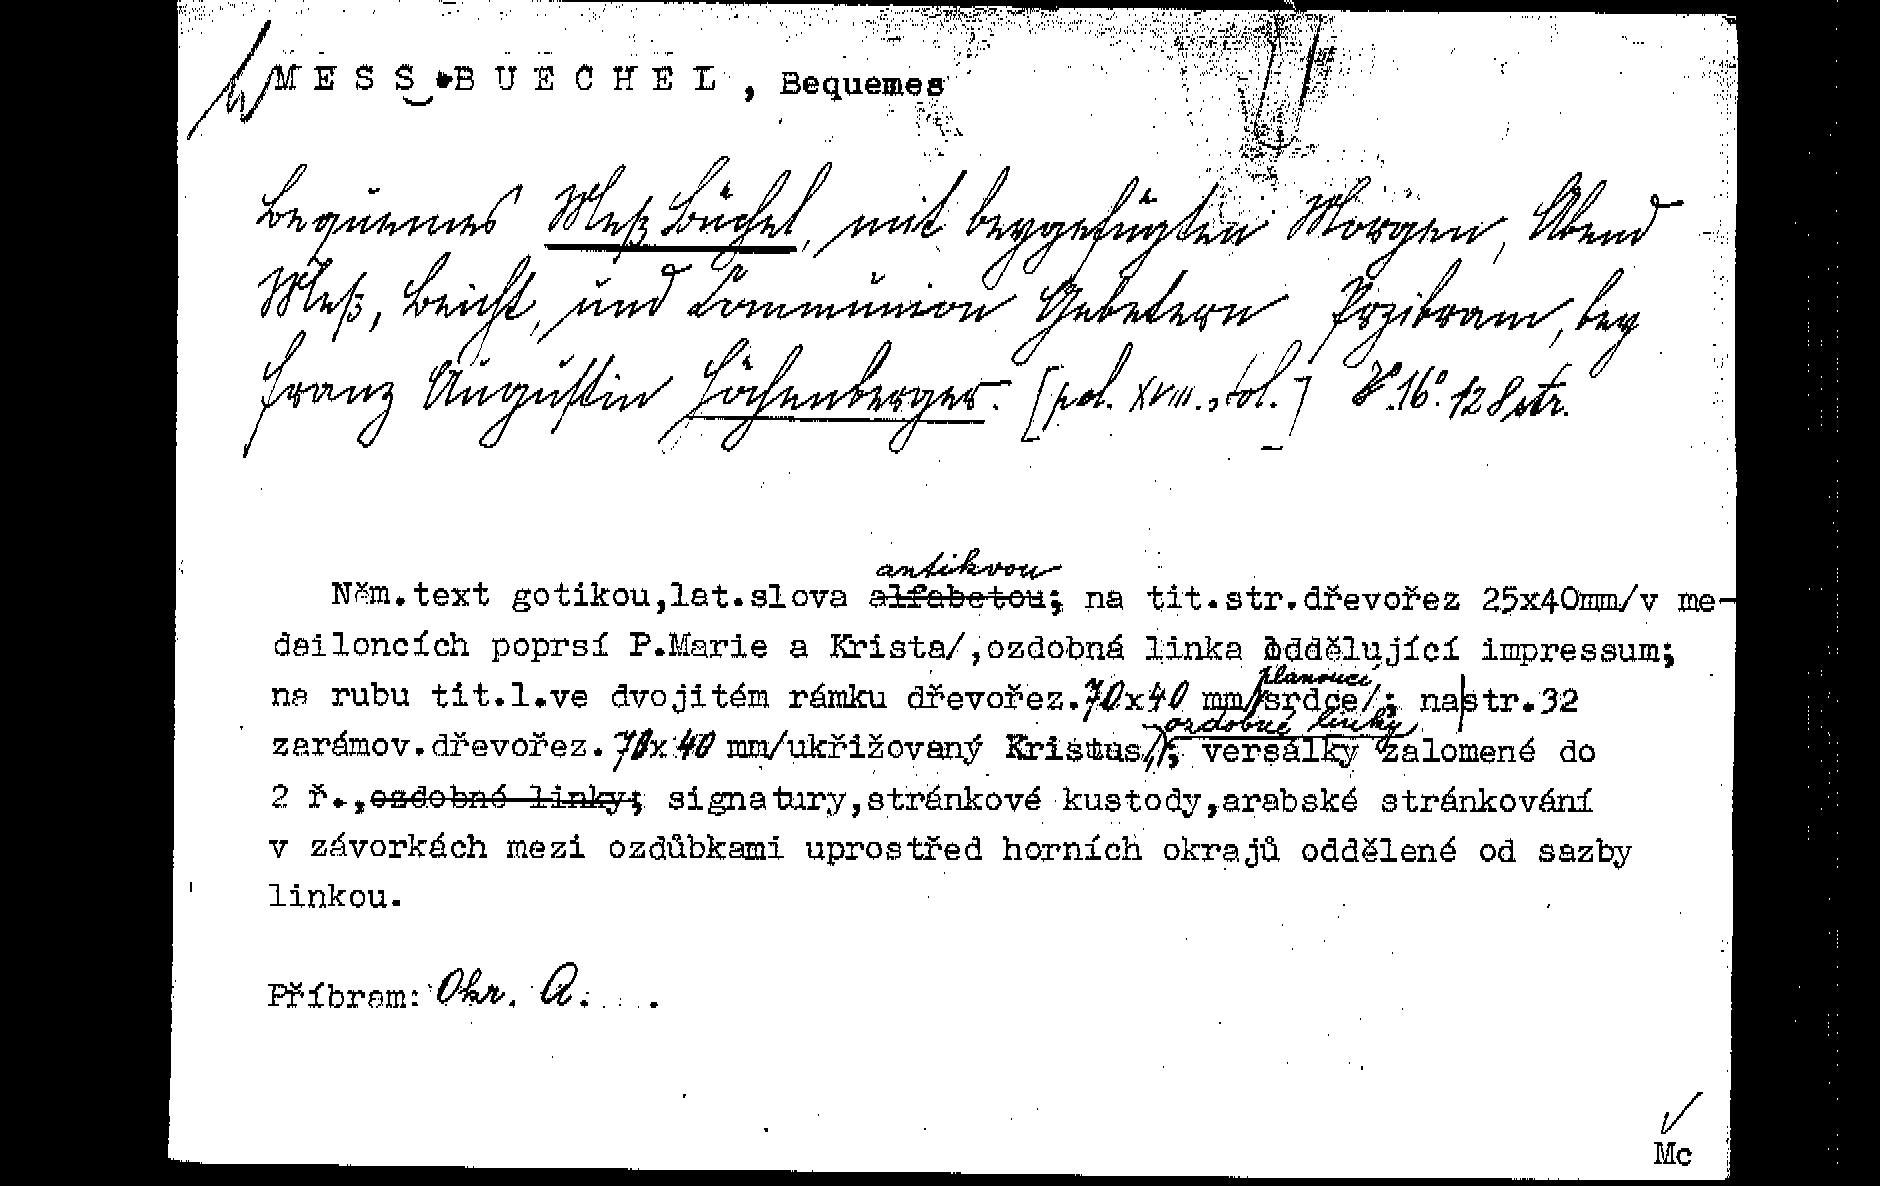 MESS BUECHEL, Bequemes
Bequemes Meß Büchel, mit beygefügten Morgen, Abend
Meß, Beicht, und Communion Gebetern Przibram, bey
Franz Augustin Höchenberger. [pol. XVIII. stol.] 16°. 128 str.
antikvou
Něm.text gotikou,lat.slova alfabetou; na tit.str.dřevořez 25x40mm/v me-
deiloncích poprsí P.Marie a Krista/,ozdobná linka oddělující impressum;
planoucí
na rubu tit.l.ve dvojitém rámku dřevořez.70x40 mm/srdce/; na str.32
ozdobné linky
zarámov.dřevořez.70x40 mm/ukřižovaný Kristus/; versálky zalomené do
2 ř.,ozdobné linky; signatury,stránkové kustody,arabské stránkování
v závorkách mezi ozdůbkami uprostřed horních okrajů oddělené od sazby
linkou.
Příbram: Okr. A.
Mc